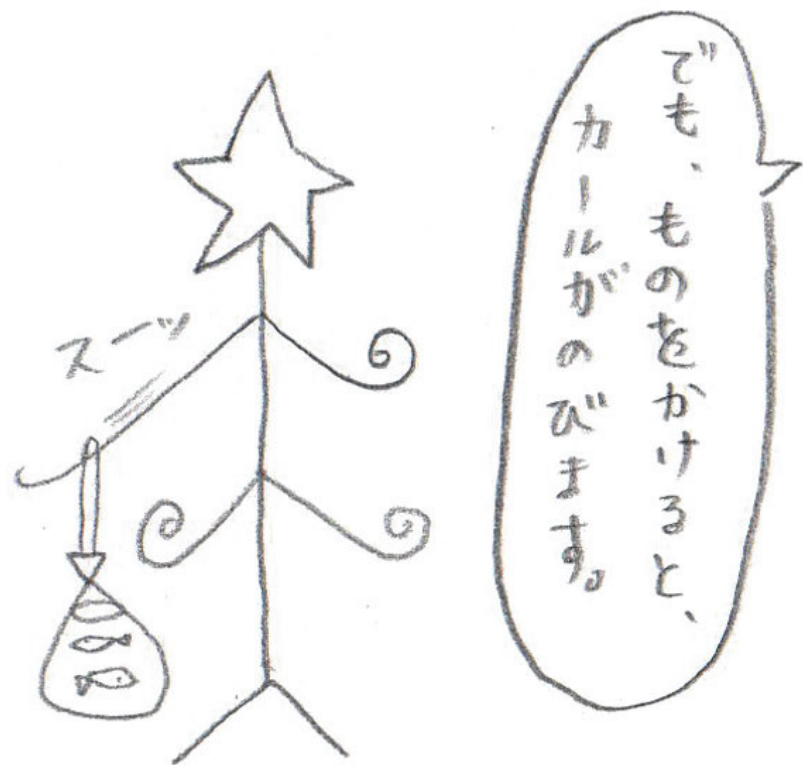 でも、ものをかけると、
カールがのびます。
スーッ